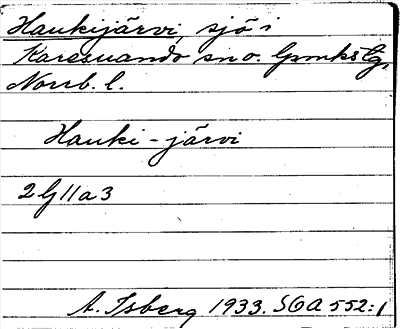 Haukijärvi, sjö i
Karesuando sn o. lpmks tg,
Norrb. l.
Hauki-järvi
2 lj 11 a 3
A. Isberg 1933. SOA 552:1